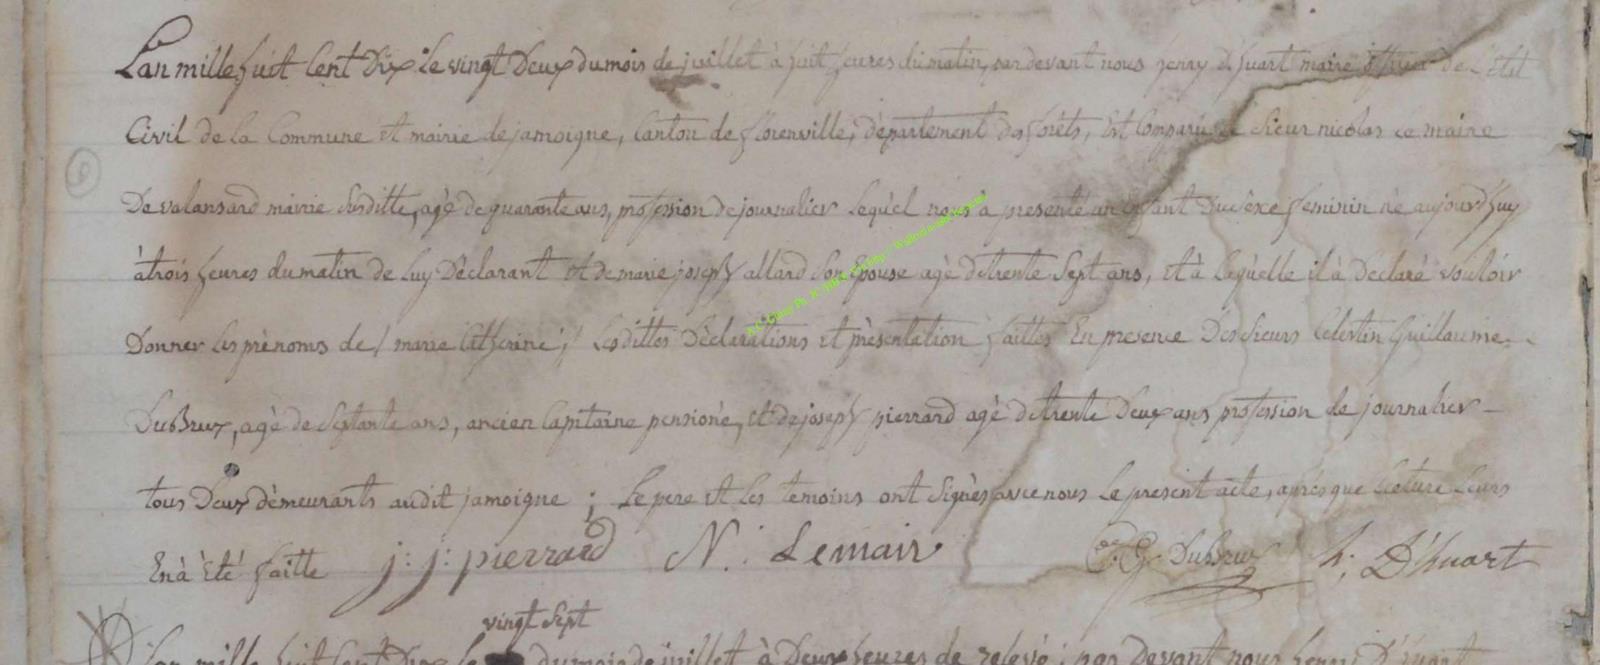 L'an mille huit Cent Dix Le vingt Deux du mois de juillet à huit heures du matin, par devant nous henry d'huart maire officier de L'Etat
Civil de la Commune et mairie de jamoigne, Canton de florenville, département des forêts, Est Comparu Le Sieur nicolas Le maire
De valansard mairie susditte, agé de quarante ans, profession de journalier Lequel nous à presenté un Enfant Du Sexe feminin né aujourd'huy
à trois heures du matin de Luy Déclarant et de marie joseph allard Son Epouse agé de trente Sept ans, et à Laquelle il à Déclaré vouloir
Donner Les prènoms de / marie Catherine; / Lesdittes Déclarations et présentation faittes En presence Des Sieurs Celestin Guillaume
DuBrux, agé de Septante ans, ancien Capitaine pensioné, et de joseph pierrard agé de trente Deux ans profession de journalier
tous Deux dèmeurants audit jamoigne ; Le pere et Les temoins ont Signès avec nous Le present acte, après que Lecture Leurs
En à èté faitte j: j: pierrard N: Lemair C. G. DuBrux h: D'huart
vingt Sept
L'an mille huit Cent Dix Le du mois de juillet à Deux heures de relevé ; par Devant nous henri D'huart